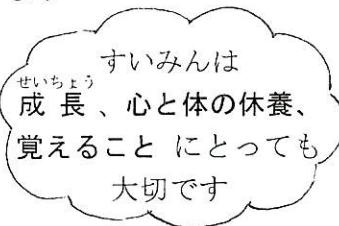 すいみんは
せいちょう
成長、心と体の休養、
覚えること にとっても
大切です